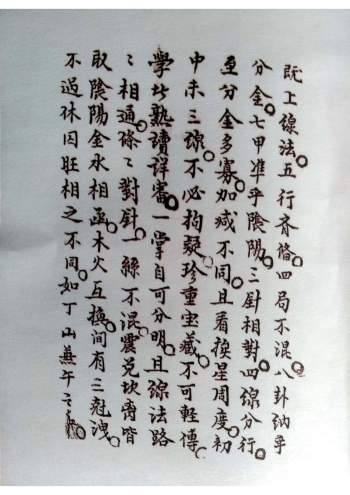 既上線法五行齊條四局不混八卦納乎
分金七甲準乎陰陽三尌相對四線分行
至分金多寡加減不同且看換星周度初
中末三線不必拘疑珍重宝藏不可輕傳
學此熟讀詳審一掌自可分明且線法路
〻相通條〻對針一絲不混震兌坎离皆
取陰陽金水相函木火互換間有三尅洩
不過休囚旺相之不同如丁山兼午之